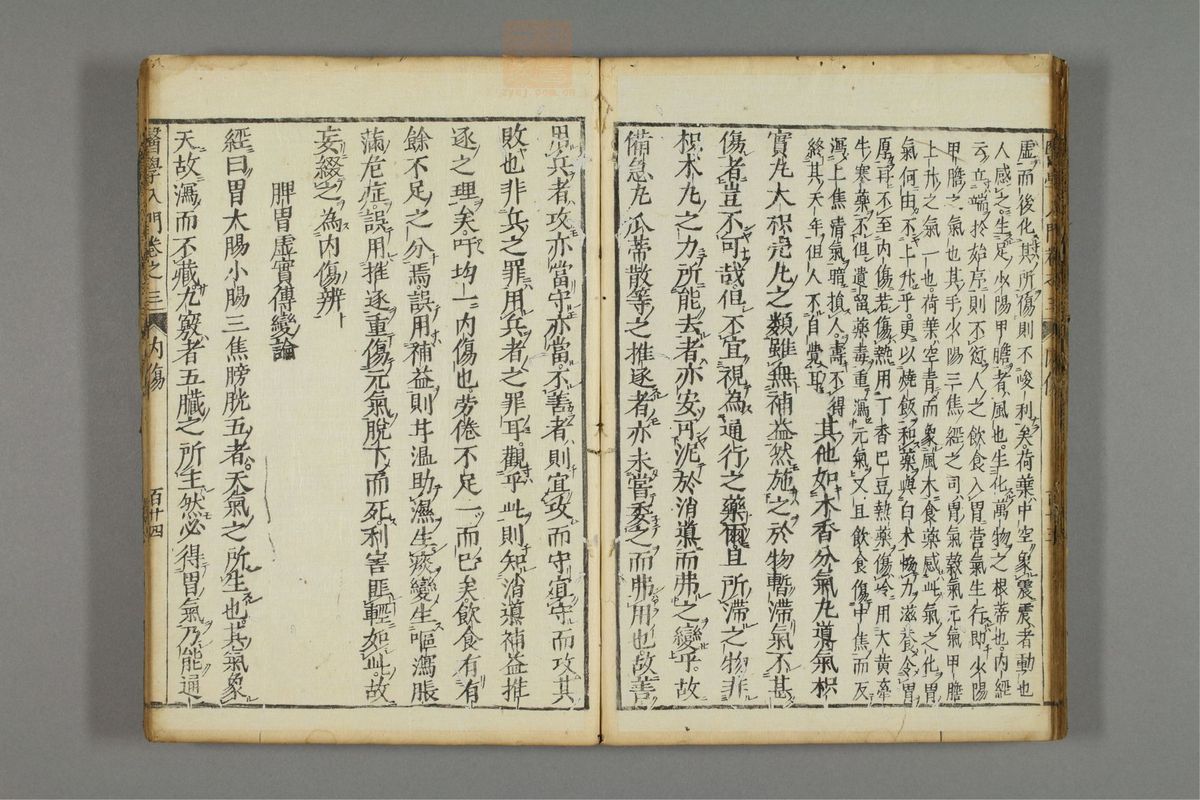 虚而後化其所傷則不峻利矣荷葉中空象震震者動也
人感之生足少陽甲膽者風也生化萬物之根蒂也内經
云立端於始序則不愆人之飲食入胃营氣生行助少陽
甲膽之氣也其手少陽三焦經之司胃氣穀氣元氣甲膽
上升之氣一也荷葉空青而象風木食藥感此氣之化胃
氣何由不上升乎更以燒飯和藥與白朮協力滋养令胃
厚再不至内傷若傷熱用丁香巴豆熱藥傷冷用大黄牽
牛寒藥不但遺留藥毒重瀉元氣又且飲食傷中焦而反
瀉上焦清氣暗損人壽不得
終其天年但人不自覺耳
其他如木香分氣丸導氣枳
實丸大枳壳丸之類雖無補益然施之於物暫滞氣不甚
傷者豈不可哉但不宜視為通行之藥爾且所滞之物非
枳朮丸之力所能去者亦安可泥於消導而弗之變乎故
備急丸瓜蒂散等之推逐者亦未嘗委之而弗用也故善
用兵者攻亦當守亦當不善者則宜攻而守宜守而攻其
敗也非兵之罪用兵者之罪耳觀乎此則知消導補益推
逐之理矣吁均一内傷也勞倦不足一而已矣飲食有有
餘不足之分焉誤用補益則甘温助濕生痰變生嘔瀉脹
滿危症誤用推逐重傷元氣脫下而死利害匪輕如此故
妄綴之為内傷辨
脾胃虚實傳變論
經曰胃大腸小腸三焦膀胱五者天氣之所生也其氣象
天故瀉而不藏九竅者五臓之所主然必得胃氣乃能通
醫學入門卷之三 内傷 百十四